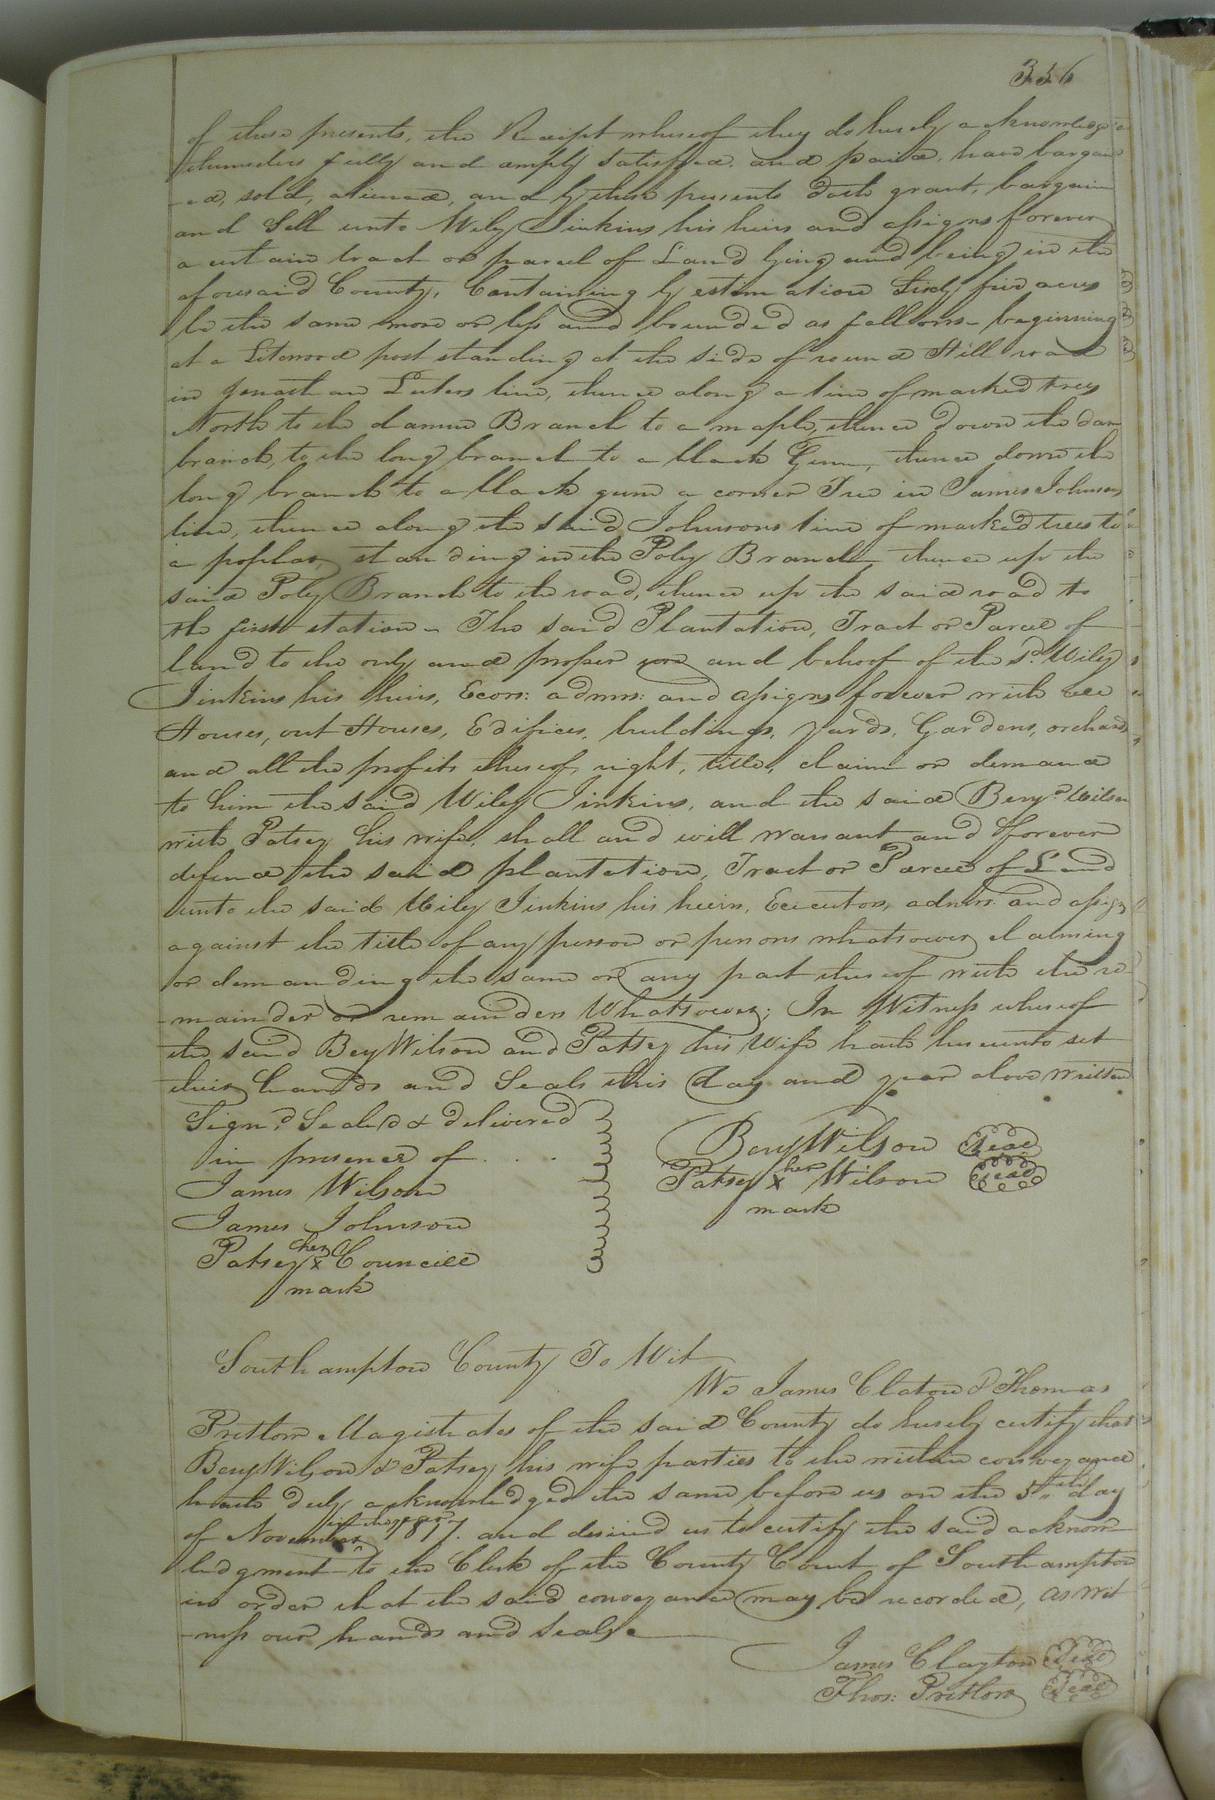 336
of these presents, the Receipt whereof they do hereby acknowledge
themselves fully and amply satisfied, and paid, have bargain
-ed, sold, aliened, and by these presents doth grant, bargain
and Sell unto Wiley Jinkins his heirs and assigns forever
a certain tract or parcel of Land lying and being in the
aforesaid County, Containing by estimation Sixty five acres
be the same more or less and bounded as follows beginning
at a Litewood post standing at the side of round Hill road
in Jonathan Luters line, thence along a line of marked trees
North to the damm Branch to a maple, thence down the dam
branch, to the long branch to a black Gum, thence down the
long branch to a black gum a corner Tree in James Johnsons
line, thence along the said Johnsons line of marked trees to
a poplar, standing in the Poley Branch thence up the
said Poley Branch to the road, thence up the said road to
the first station - The said Plantation, Tract or Parcel of
land to the only and proper use and behoof of the sd. Wiley
Jinkins his heirs, Ecors: admrs: and assigns forever with all
Houses, out Houses, Edifices, buildings, yards, Gardens, orchards
and all the profits thereof, right, title, claim or demand
to him the said Wiley Jinkins, and the said Benjd. Wilson
with Patsey his wife, shall and will warrant and forever
defend the said plantation, Tract or Parcel of Land
unto the said Wiley Jinkins his heirs, Executors, admrs. and assigns
against the title of any person or persons whatsoever claiming
or demanding the same or any part thereof with the re-
-mainder or remainders Whatsoever; In Witness whereof
the said Benj Wilson and Patsey his Wife hath hereunto set
their hands and Seals this day and year above written
Sign'd Seal'd & delivered
in presence of . . .
James Wilson
James Johnson
Patsey her x Councill
mark
Benj Wilson Seal
Patsey her x Wilson Seal
mark
Southampton County To Wit
We James Claton & Thomas
Pretlow Magistrates of the said County do hereby certify that
Benj Wilson & Patsey his wife parties to the within conveyance
hath duly acknowledged the same before us on the 5th. day
of November in the year 1817. and desired us to certify the said acknow-
ledgment to the Clerk of the County Court of Southampton
in order that the said conveyance may be recorded, as wit
-ness our hands and seals
James Clayton Seal
Thos: Pretlow Seal